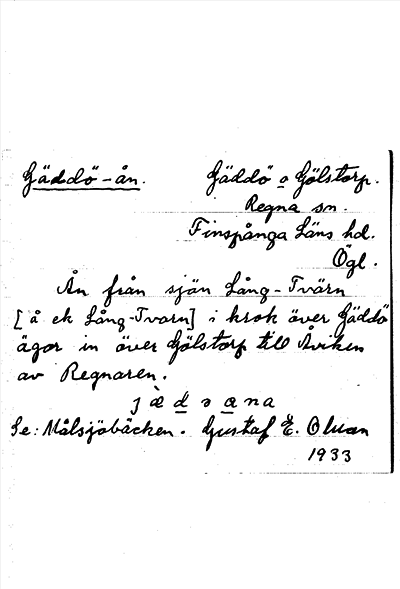 Gäddö-ån. Gäddö o Gölstorp.
Regna sn.
Finspånga Läns hd.
Ögl.
Ån från sjön Lång-Tvärn
[å ek Lång-Tvarn] i krok över Gäddö
ägor in över Gölstorp till Åviken
av Regnaren.
jædəæna
Se: Målsjöbäcken. Gustaf E. Olson
1933